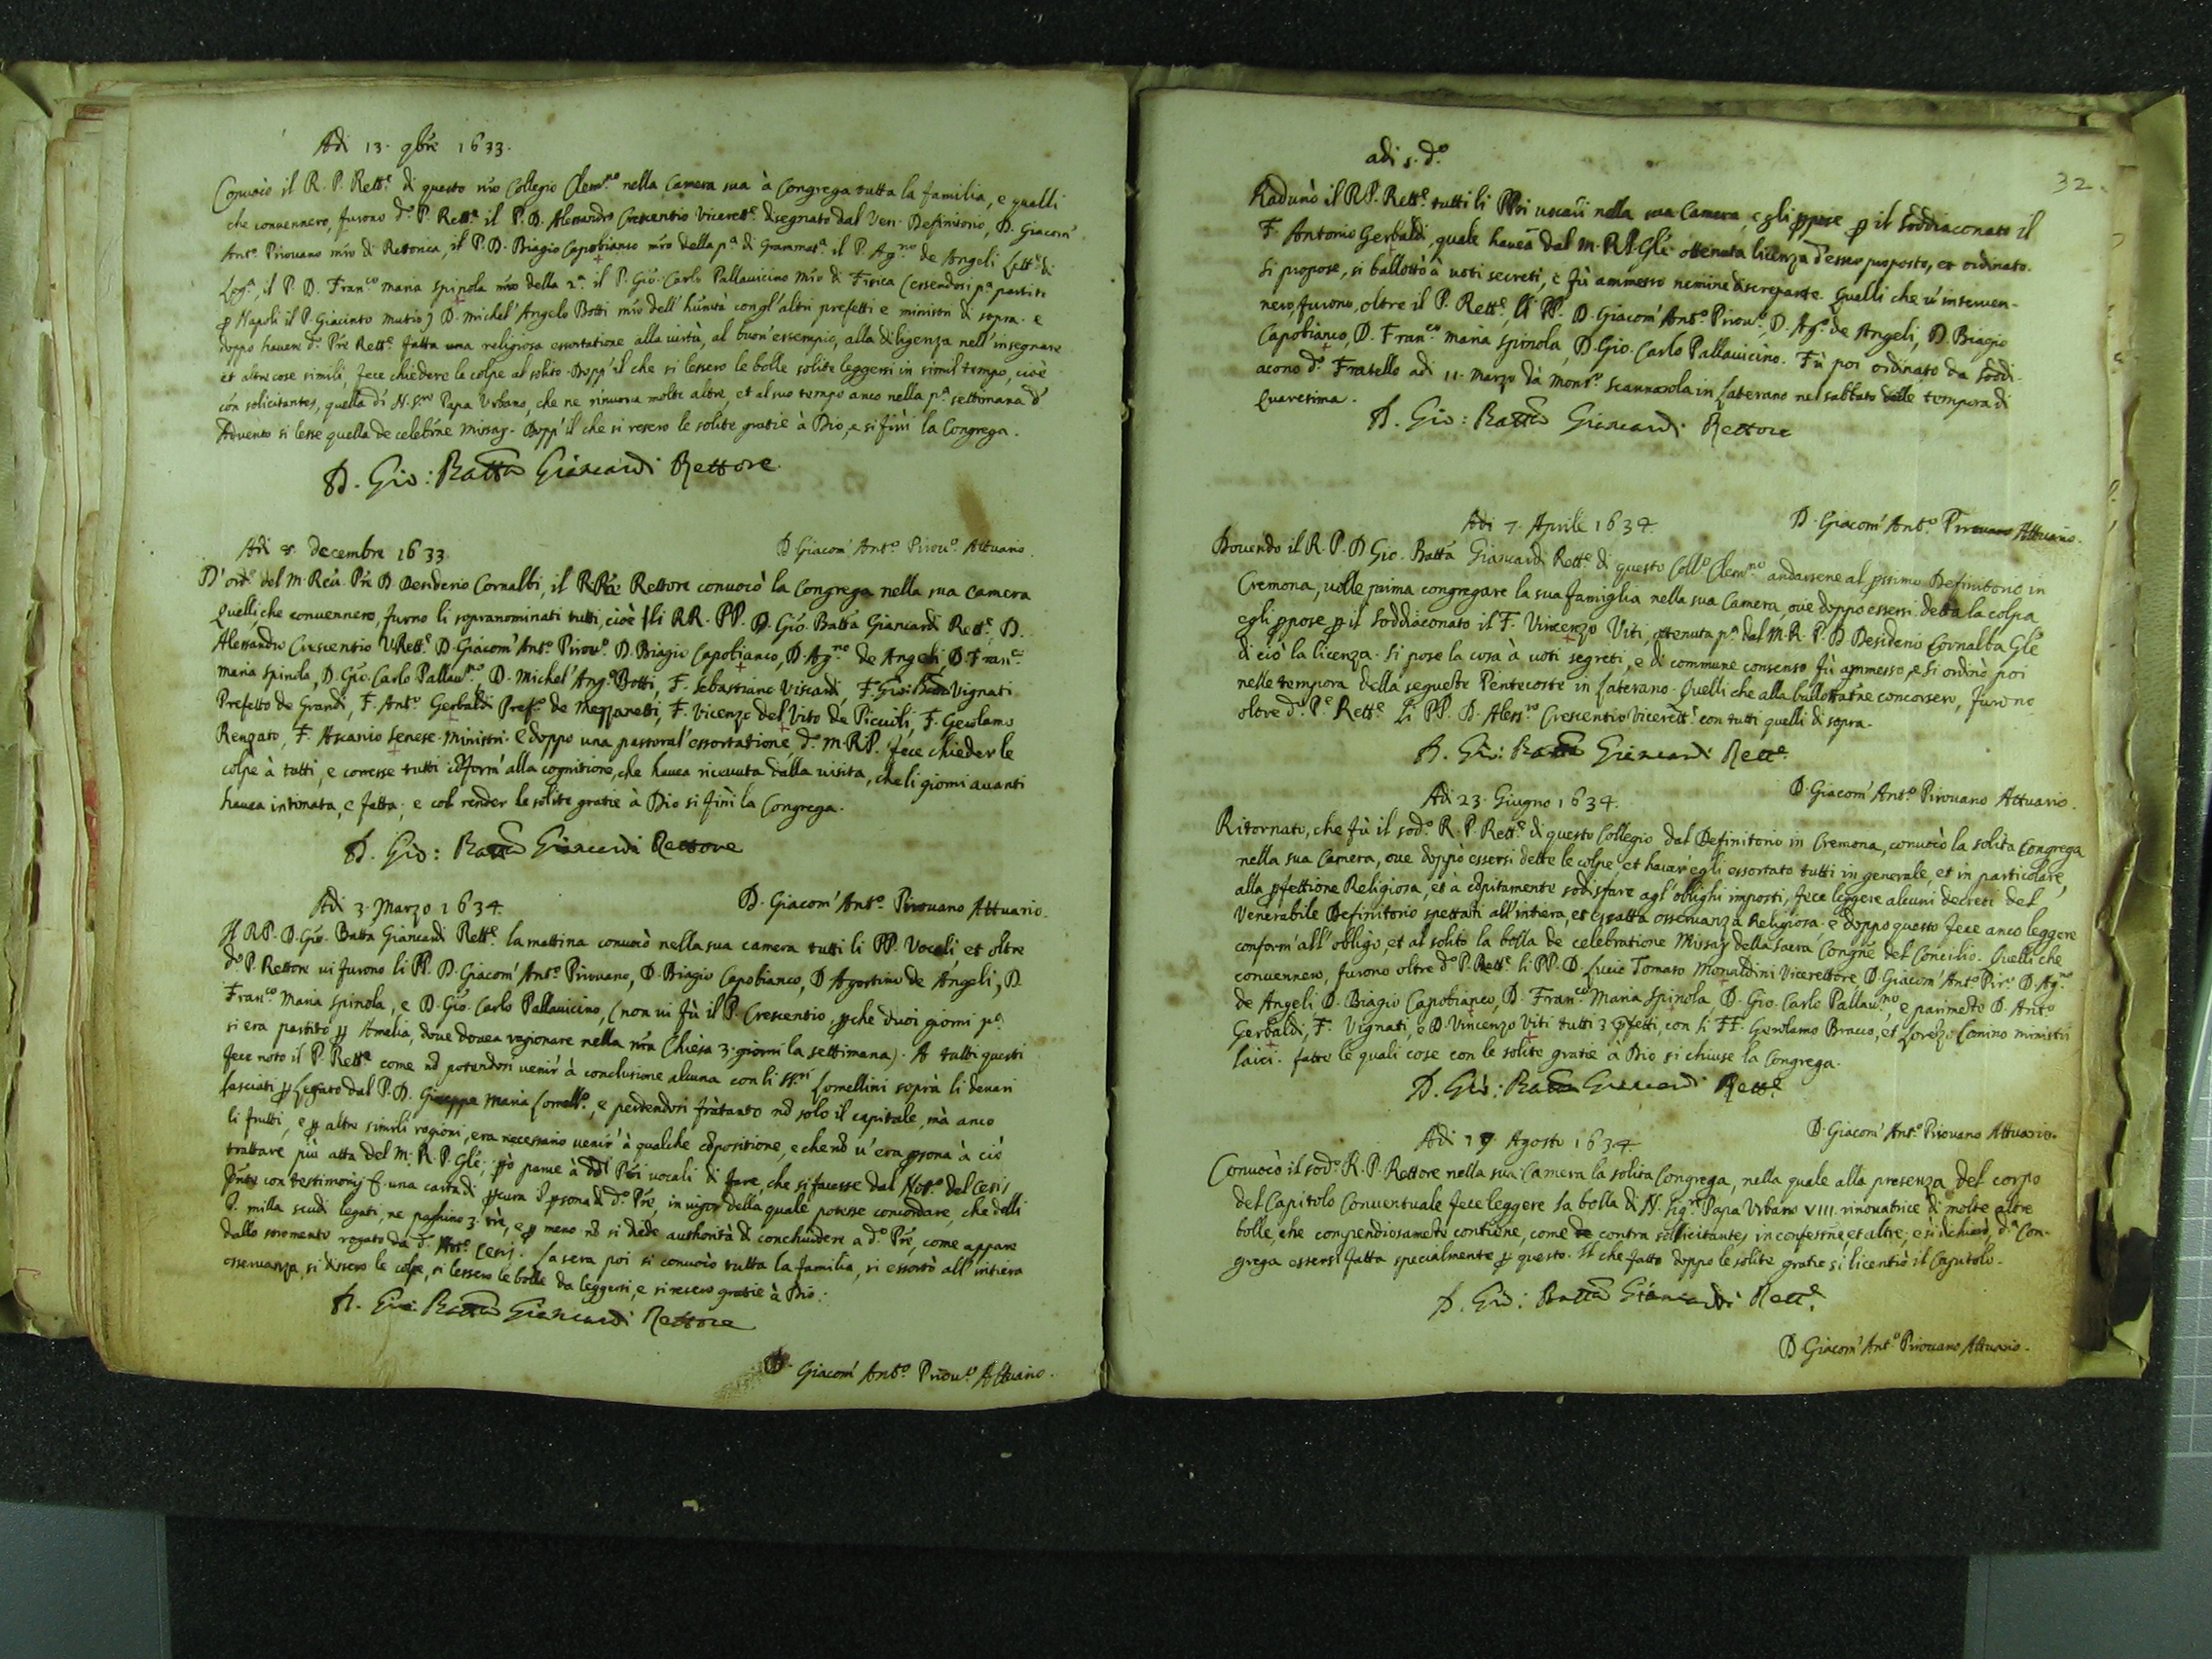 Adi 13. 9bre 1633.
Convocò il R. P. Rett.e di questo nr̃o Collegio Clem.no nella Camera sua à Congrega tutta la familia, e quelli
che convennero, furono d.o P. Rett.e il P. D. Alessandro Crescentio Vicerett.e disegnato dal Ven. Definitorio, D. Giacom'
Ant.o Pirovano mr̃o di Rettorica, il P. D. Biagio Capobianco mr̃o della p.a di Grammat.a il P. Ag.no de Angeli Lett.e di
Log.a, il P. D. Fran.co maria Spinola mr̃o della 2.a il P. Gio. Carlo Pallavicino Mr̃o di Fisica (essendosi p.a partito
ꝑ Napoli il P. Giacinto Mutio) D. Michel' Angelo Botti mr̃o dell' hũntà con gl' altri prefetti e ministri di sopra. e
doppo havere d.o Prẽ Rett.e fatta una religiosa essortatione alla virtù, al buon' essempio, alla diligenza nell' insegnare
et altre cose simili, fece chiedere le colpe al solito. Dopp' il che si lessero le bolle solite leggersi in simil tempo, cioè
cón solicitantes, quella di N. Sre Papa Urbano, che ne rinuova molte altre, et al suo tempo anco nella p.a settimana d'
Advento si lesse quella de celebr̃ne Missar. Dopp' il che si resero le solite gratie à Dio, e si finì la Congrega.
D. Gio: Batta Giancardi Rettore
D. Giacom' Ant.o Pirov.o Attuario.
Adi 8. decembre 1633
D' ord.e del M. Reu. Prẽ D. Desiderio Cornalbi, il R. Prẽ Rettore convocò la Congrega nella sua camera
Quelli, che convennero, furno li sopranominati tutti, cioè li RR. PP. D. Gio. Batta Giancardi Rett.e D.
Alessandro Crescentio V.Rett.e D. Giacom' Ant.o Pirov.o D. Biagio Capobianco, D. Ag.no de Angeli, D. Fran.co
Maria Spinola, D. Gio. Carlo Pallav.no, D. Michel' Ang.o Botti, F. Sebastiano Viscardi, F. Gio: Batta Vignati
Prefetto de Grandi, F. Ant.o Gerbaldi Pref.o de Mezzanetti, F. Vicenzo del Vito de Piccioli, F. Gerolamo
Renzato, F. Ascanio Senese. Ministri. E doppo una pastoral' essortatione d.o M. R. P. fece chieder le
colpe à tutti, e corresse tutti cõform' alla cognitione, che havea ricevuta dalla visita, che li giorni avanti
havea intimata, e fatta; e col render le solite gratie à Dio si finì la Congrega.
D. Gio: Batta Giancardi Rettore
D. Giacom' Ant.o Pirovano Attuario.
Adi 3. Marzo 1634.
Il R.P. D. Gio. Batta Giancardi Rett.e la mattina convocò nella sua camera tutti li PP. Vocali et oltre
d.o P. Rettore vi furono li PP. D. Giacom' Ant.o Pirovano, D. Biagio Capobianco, D. Agostino de Angeli, D.
Fran.co Maria Spinola, e D. Gio. Carlo Pallavicino, (non vi fù il P. Crescentio, ꝑche duoi giorni p.a
si era partito ꝑ Amelia, dove dovea ragionare nella nr̃a Chiesa 3. giorni la settimana). A tutti questi
fece noto il P. Rett.e come nõ potendosi venir' à conclusione alcuna con li SS.ri Lomellini soprà li denari
lasciati ꝑ Legato dal P. D. Giuseppe Maria Lomell.o, e perdendosi frà tanto nõ solo il capitale, mà anco
li frutti, e ꝑ altre simili ragioni, era necessario venir' à qualche cõpositione, e che nõ v' era ꝑsona à ciò
trattare più atta del M. R. P. Glẽ; ꝑò parve à dd.i Prĩ vocali di fare, che si facesse dal Not.o del Cesis
una carta di ꝓcura I ꝑsona di d.o Prẽ, in vigor della quale potesse concordare, che delli
milla scudi legati, ne paghino 3. trè, e ꝑ meno nõ si diede authorità di conchiudere a d.o Prẽ, come appare
dallo soromento rogato da d.o Not.o Cesis. La sera poi si convocò tutta la familia, si essortò all' intiera
osservanza, si dissero le colpe, si lessero le bolle da leggersi, e si resero gratie à Dio:
D. Gio: Batta Giancardi Rettore
D. Giacom' Ant.o Pirov.o Attuario.
32.
adi 5. d.o
Radunò il R.P. Rett.e tutti li PPri vocali nella sua Camera, e gli ꝓpose ꝑ il Soddiaconato il
F. Antonio Gerbaldi, quale havea dal M. R. P. Glẽ ottenuta licenza d'esser proposto, et ordinato.
Si propose, si ballottò à voti secreti, e fù ammesso nemine discrepante. Quelli che v' interven-
nero, furono, oltre il P. Rett.e, li PP. D. Giacom' Ant.o Pirov.o, D. Ag.o de Angeli, D. Biagio
Capobianco, D. Fran.co Maria Spinola, D. Gio. Carlo Pallavicino. Fù poi ordinato da Soddi-
acono d.o Fratello adi 11. Marzo dà Mons.r Scannarola in Laterano nel sabbato delle tempora di
Quaresima.
D. Gio: Batta Giancardi Rettore
D. Giacom' Ant.o Pirovano Attuario.
Adi 7. Aprile 1634.
Dovendo il R. P. D. Gio. Batta Giancardi Rett.e di questo Coll.o Clem.no andarsene al ꝓssimo Definitorio in
Cremona, volle prima congregare la sua famiglia nella sua Camera, ove doppo essersi detta la colpa
egli ꝓpose ꝑ il Soddiaconato il F. Vincenzo Viti, ottenuta p.a dal M. R. P. D. Desiderio Cornalba Glẽ
di ciò la licenza. Si pose la cosa à voti segreti, e di commune consenso fù ammesso, e si ordinò poi
nelle tempora della seguente Pentecoste in Laterano. Quelli che alla ballottat.ne concorsero, furono
oltre d.o P.e Rett.e li PP. D. Aless.ro Crescentio Vicerett.e con tutti quelli di sopra.
D. Gio: Batta Giancardi Rett.e
D. Giacom' Ant.o Pirovano Attuario.
Adi 23. Giugno 1634.
Ritornato, che fù il sod.o R. P. Rett.e di questo Collegio dal Definitorio in Cremona, convocò la solita Congrega
nella sua Camera, ove doppò essersi dette le colpe, et haver' egli essortato tutti in generale, et in particolare,
alla ꝑfettione Religiosa, et à cõpitamente sodisfare agl' oblighi imposti, fece leggere alcuni decreti del
Venerabile Definitorio spettanti all' intiera, et esatta osservanza Religiosa. e doppo questo fece anco leggere
conform' all' obligo, et al solito la bolla de celebratione Missar della sacra Congñe del Concilio. Quelli che
convennero, furono oltre d.o P. Rett.e li PP. D. Lucio Tomaso Monaldini Vicerettore, D. Giacom' Ant.o Pir.o D. Ag.no
de Angeli D. Biagio Capobianco, D. Fran.co Maria Spinola, D. Gio. Carlo Pallav.no, e parimẽte D. Ant.o
Gerbaldi, F. Vignati, e D. Vincenzo Viti tutti 3 ꝓfetti, con li FF. Gerolamo Bracco, et Lorẽzo Conino ministri
laici. fatte le quali cose con le solite gratie à Dio si chiuse la Congrega.
D. Gio: Batta Giancardi Rett.e
D. Giacom' Ant.o Pirovano Attuario.
Adi 19 Agosto 1634.
Convocò il sod.o R. P. Rettore nella sua Camera la solita Congrega, nella quale alla presenza del corpo
del Capitolo Conventuale fece leggere la bolla di N. Sig.re Papa Urbano VIII. rinovatrice di molte altre
bolle, che conpendiosamẽte contiene, come de contra sollicitantes in confessñe, et altre; e si dichiarò, d.a Con-
grega essersi fatta specialmente ꝑ questo. Il che fatto doppo le solite gratie si licentiò il Capitolo.
D. Gio: Batta Giancardi Rett.e
D. Giacom' Ant.o Pirovano Attuario.